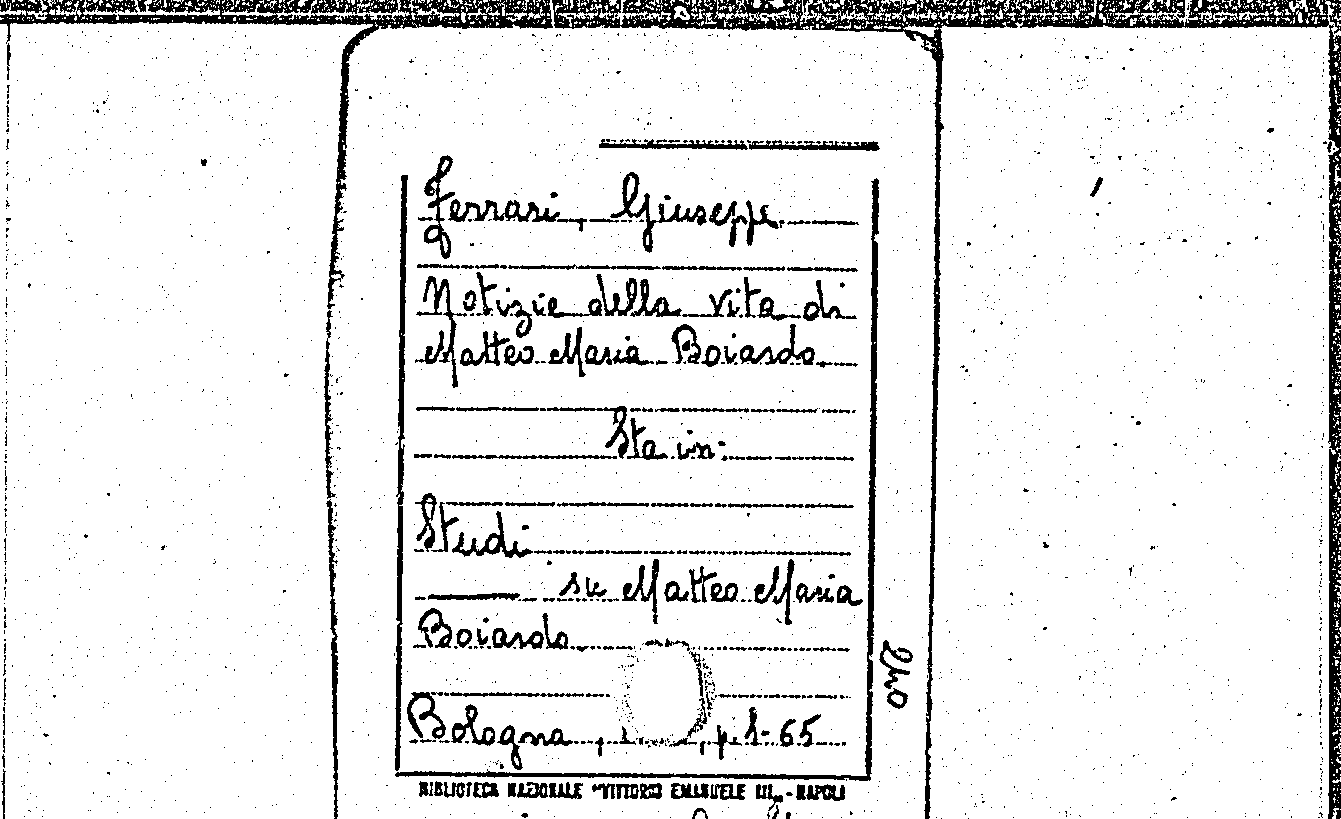 Ferrari, Giuseppe
Notizie della vita di
Matteo Maria Boiardo
Sta in:
Studi
su Matteo Maria
Boiardo
Bologna, , p. 1-65
BIBLIOTECA NAZIONALE "VITTORIO EMANUELE III„ - NAPOLI